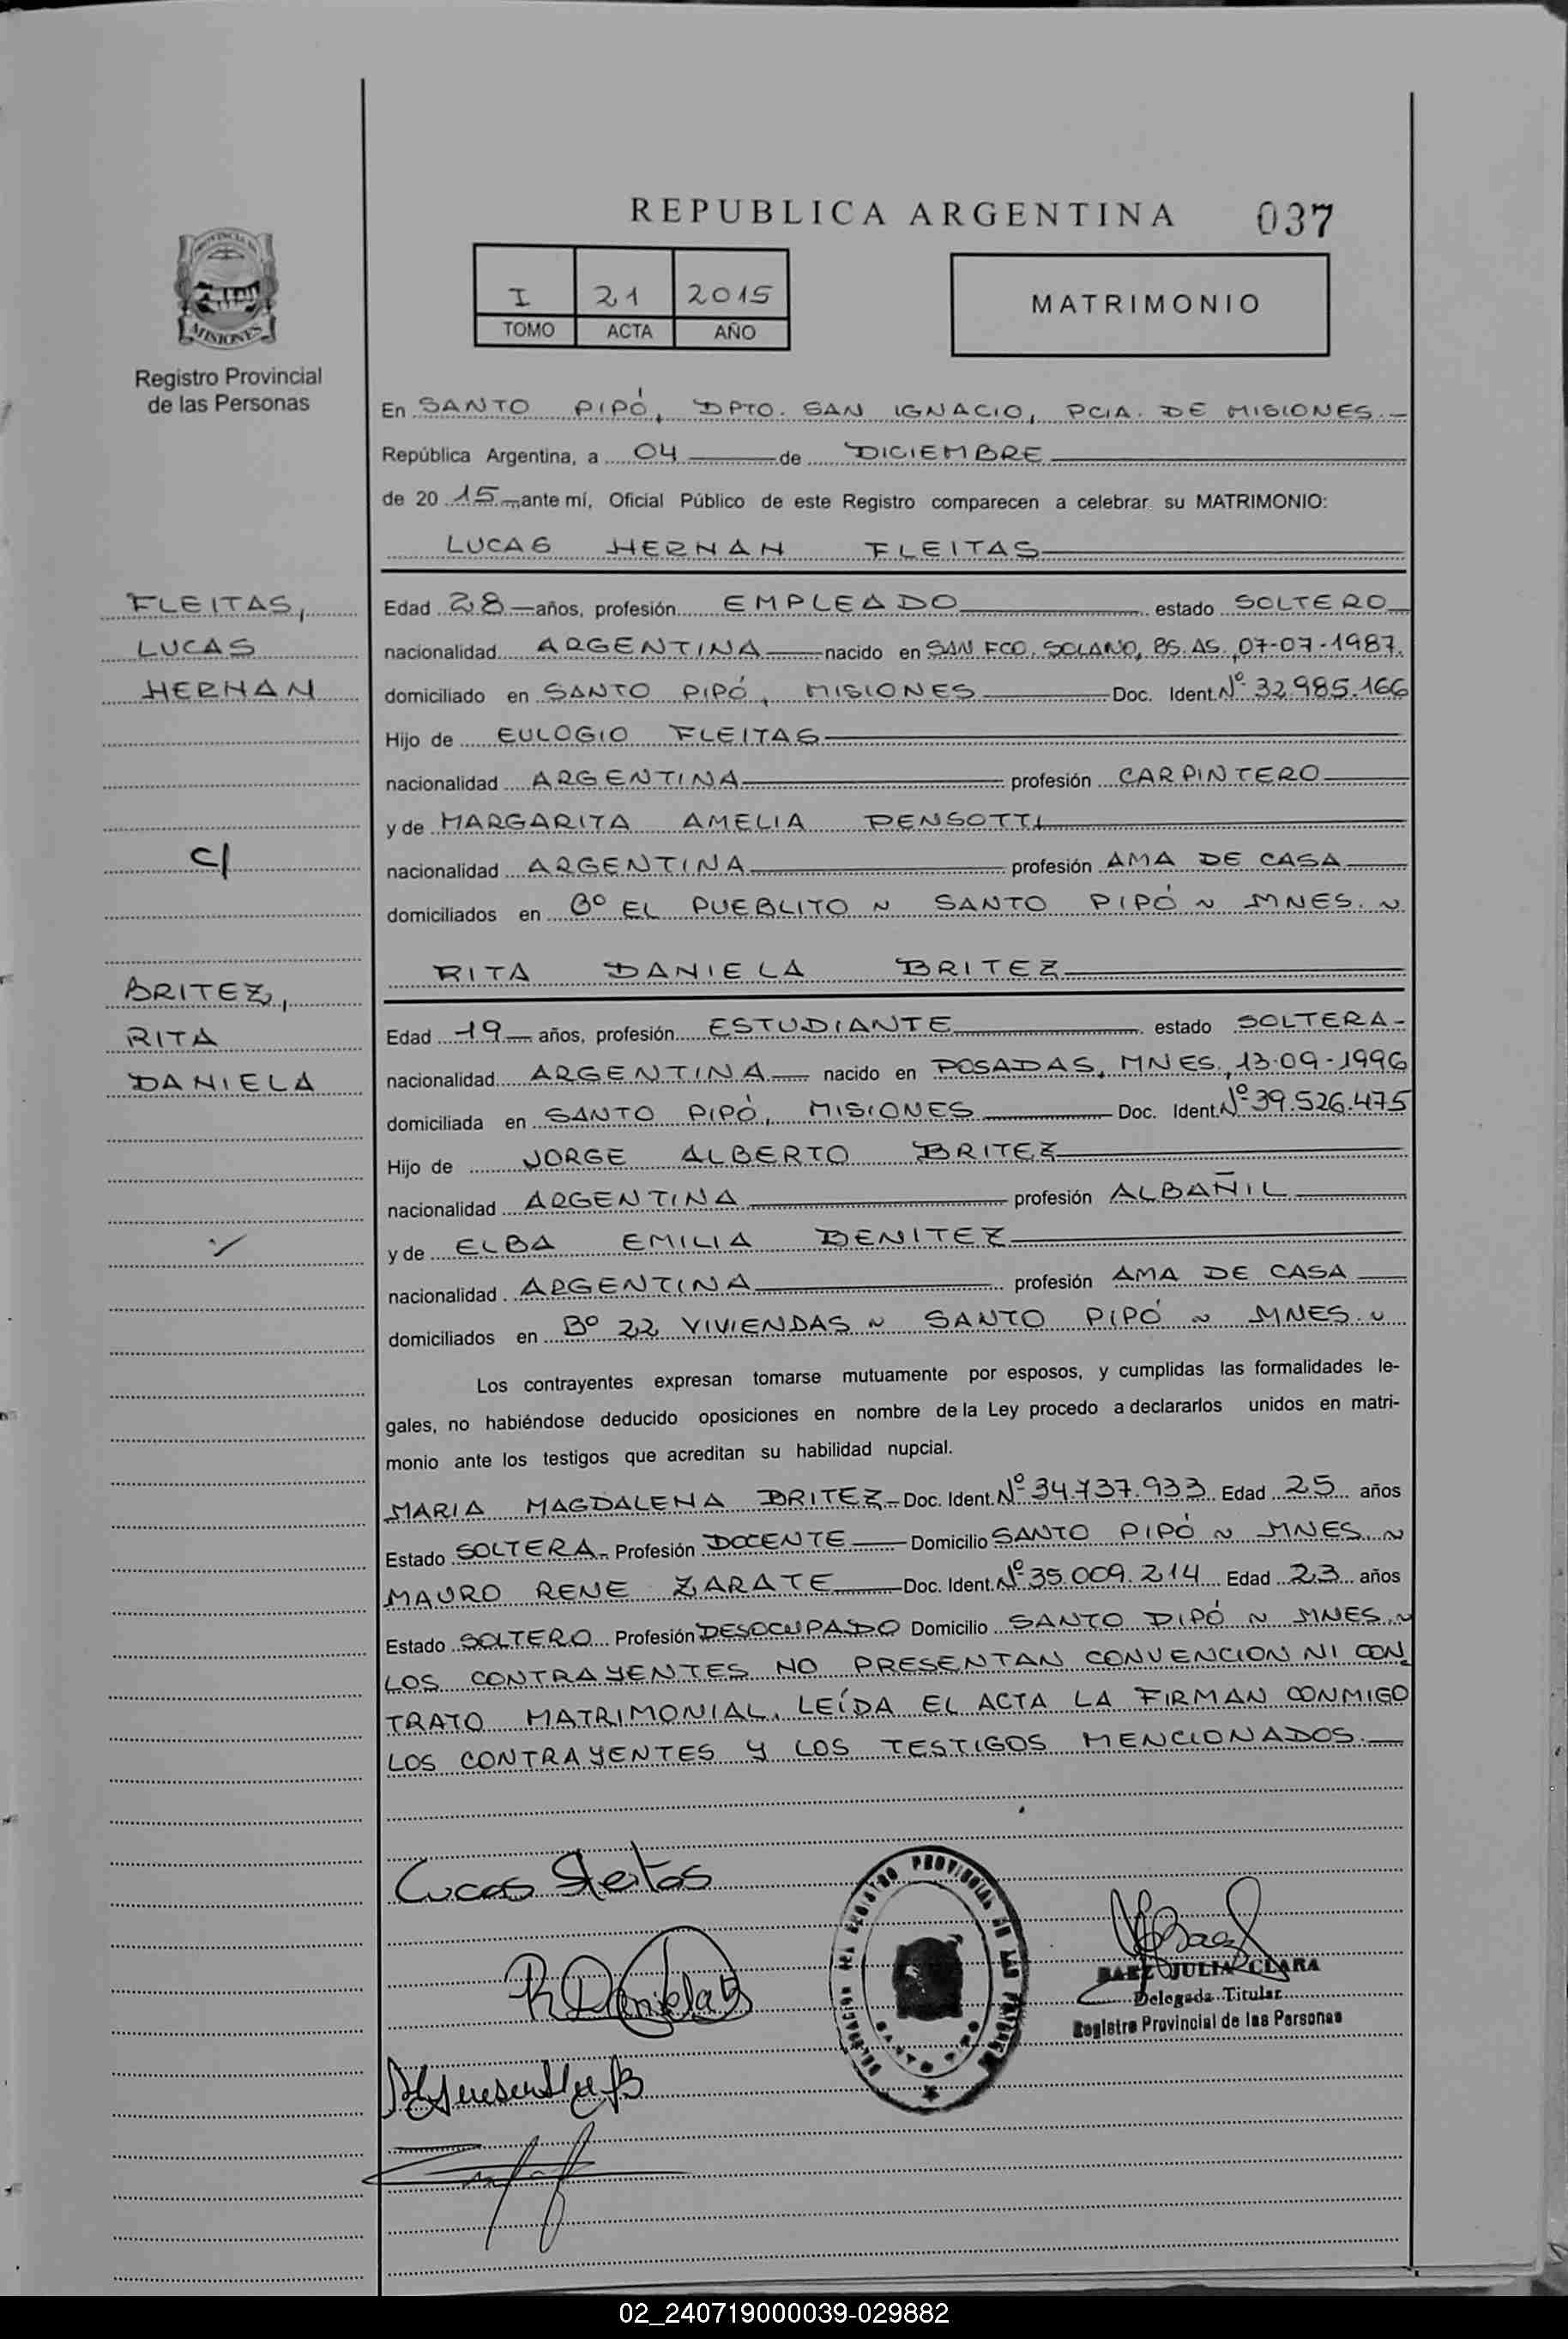 REPUBLICA ARGENTINA 037
PROVINCIA DE
MISIONES
Registro Provincial
de las Personas
I 21 2015
TOMO ACTA AÑO
MATRIMONIO
En SANTO PIPÓ, DPTO. SAN IGNACIO, PCIA. DE MISIONES.
República Argentina, a 04 de DICIEMBRE
de 20 15 ante mí, Oficial Público de este Registro comparecen a celebrar su MATRIMONIO:
LUCAS HERNAN FLEITAS
FLEITAS,
LUCAS
HERNAN
C/
BRITEZ,
RITA
DANIELA
Edad 28 años, profesión EMPLEADO estado SOLTERO
nacionalidad ARGENTINA nacido en SAN FCO. SOLANO, BS. AS., 07-07-1987.
domiciliado en SANTO PIPÓ, MISIONES Doc. Ident. Nº 32.985.166
Hijo de EULOGIO FLEITAS
nacionalidad ARGENTINA profesión CARPINTERO
y de MARGARITA AMELIA PENSOTTI
nacionalidad ARGENTINA profesión AMA DE CASA
domiciliados en Bº EL PUEBLITO ~ SANTO PIPÓ ~ MNES. ~
RITA DANIELA BRITEZ
Edad 19 años, profesión ESTUDIANTE estado SOLTERA -
nacionalidad ARGENTINA nacido en POSADAS, MNES., 13-09-1996
domiciliada en SANTO PIPÓ, MISIONES Doc. Ident. Nº 39.526.475
Hijo de JORGE ALBERTO BRITEZ
nacionalidad ARGENTINA profesión ALBAÑIL
y de ELBA EMILIA BENITEZ
nacionalidad ARGENTINA profesión AMA DE CASA
domiciliados en Bº 22 VIVIENDAS ~ SANTO PIPÓ ~ MNES. ~
Los contrayentes expresan tomarse mutuamente por esposos, y cumplidas las formalidades le-
gales, no habiéndose deducido oposiciones en nombre de la Ley procedo a declararlos unidos en matri-
monio ante los testigos que acreditan su habilidad nupcial.
MARIA MAGDALENA BRITEZ - Doc. Ident. Nº 34.737.933 Edad 25 años
Estado SOLTERA - Profesión DOCENTE Domicilio SANTO PIPÓ ~ MNES. ~
MAURO RENE ZARATE Doc. Ident. Nº 35.009.214 Edad 23 años
Estado SOLTERO Profesión DESOCUPADO Domicilio SANTO PIPÓ ~ MNES. ~
LOS CONTRAYENTES NO PRESENTAN CONVENCION NI CON-
TRATO MATRIMONIAL. LEÍDA EL ACTA LA FIRMAN CONMIGO
LOS CONTRAYENTES Y LOS TESTIGOS MENCIONADOS.
Lucas Fleitas
R Daniela B
BAEZ JULIA CLARA
Delegada Titular
Registro Provincial de las Personas
02_240719000039-029882